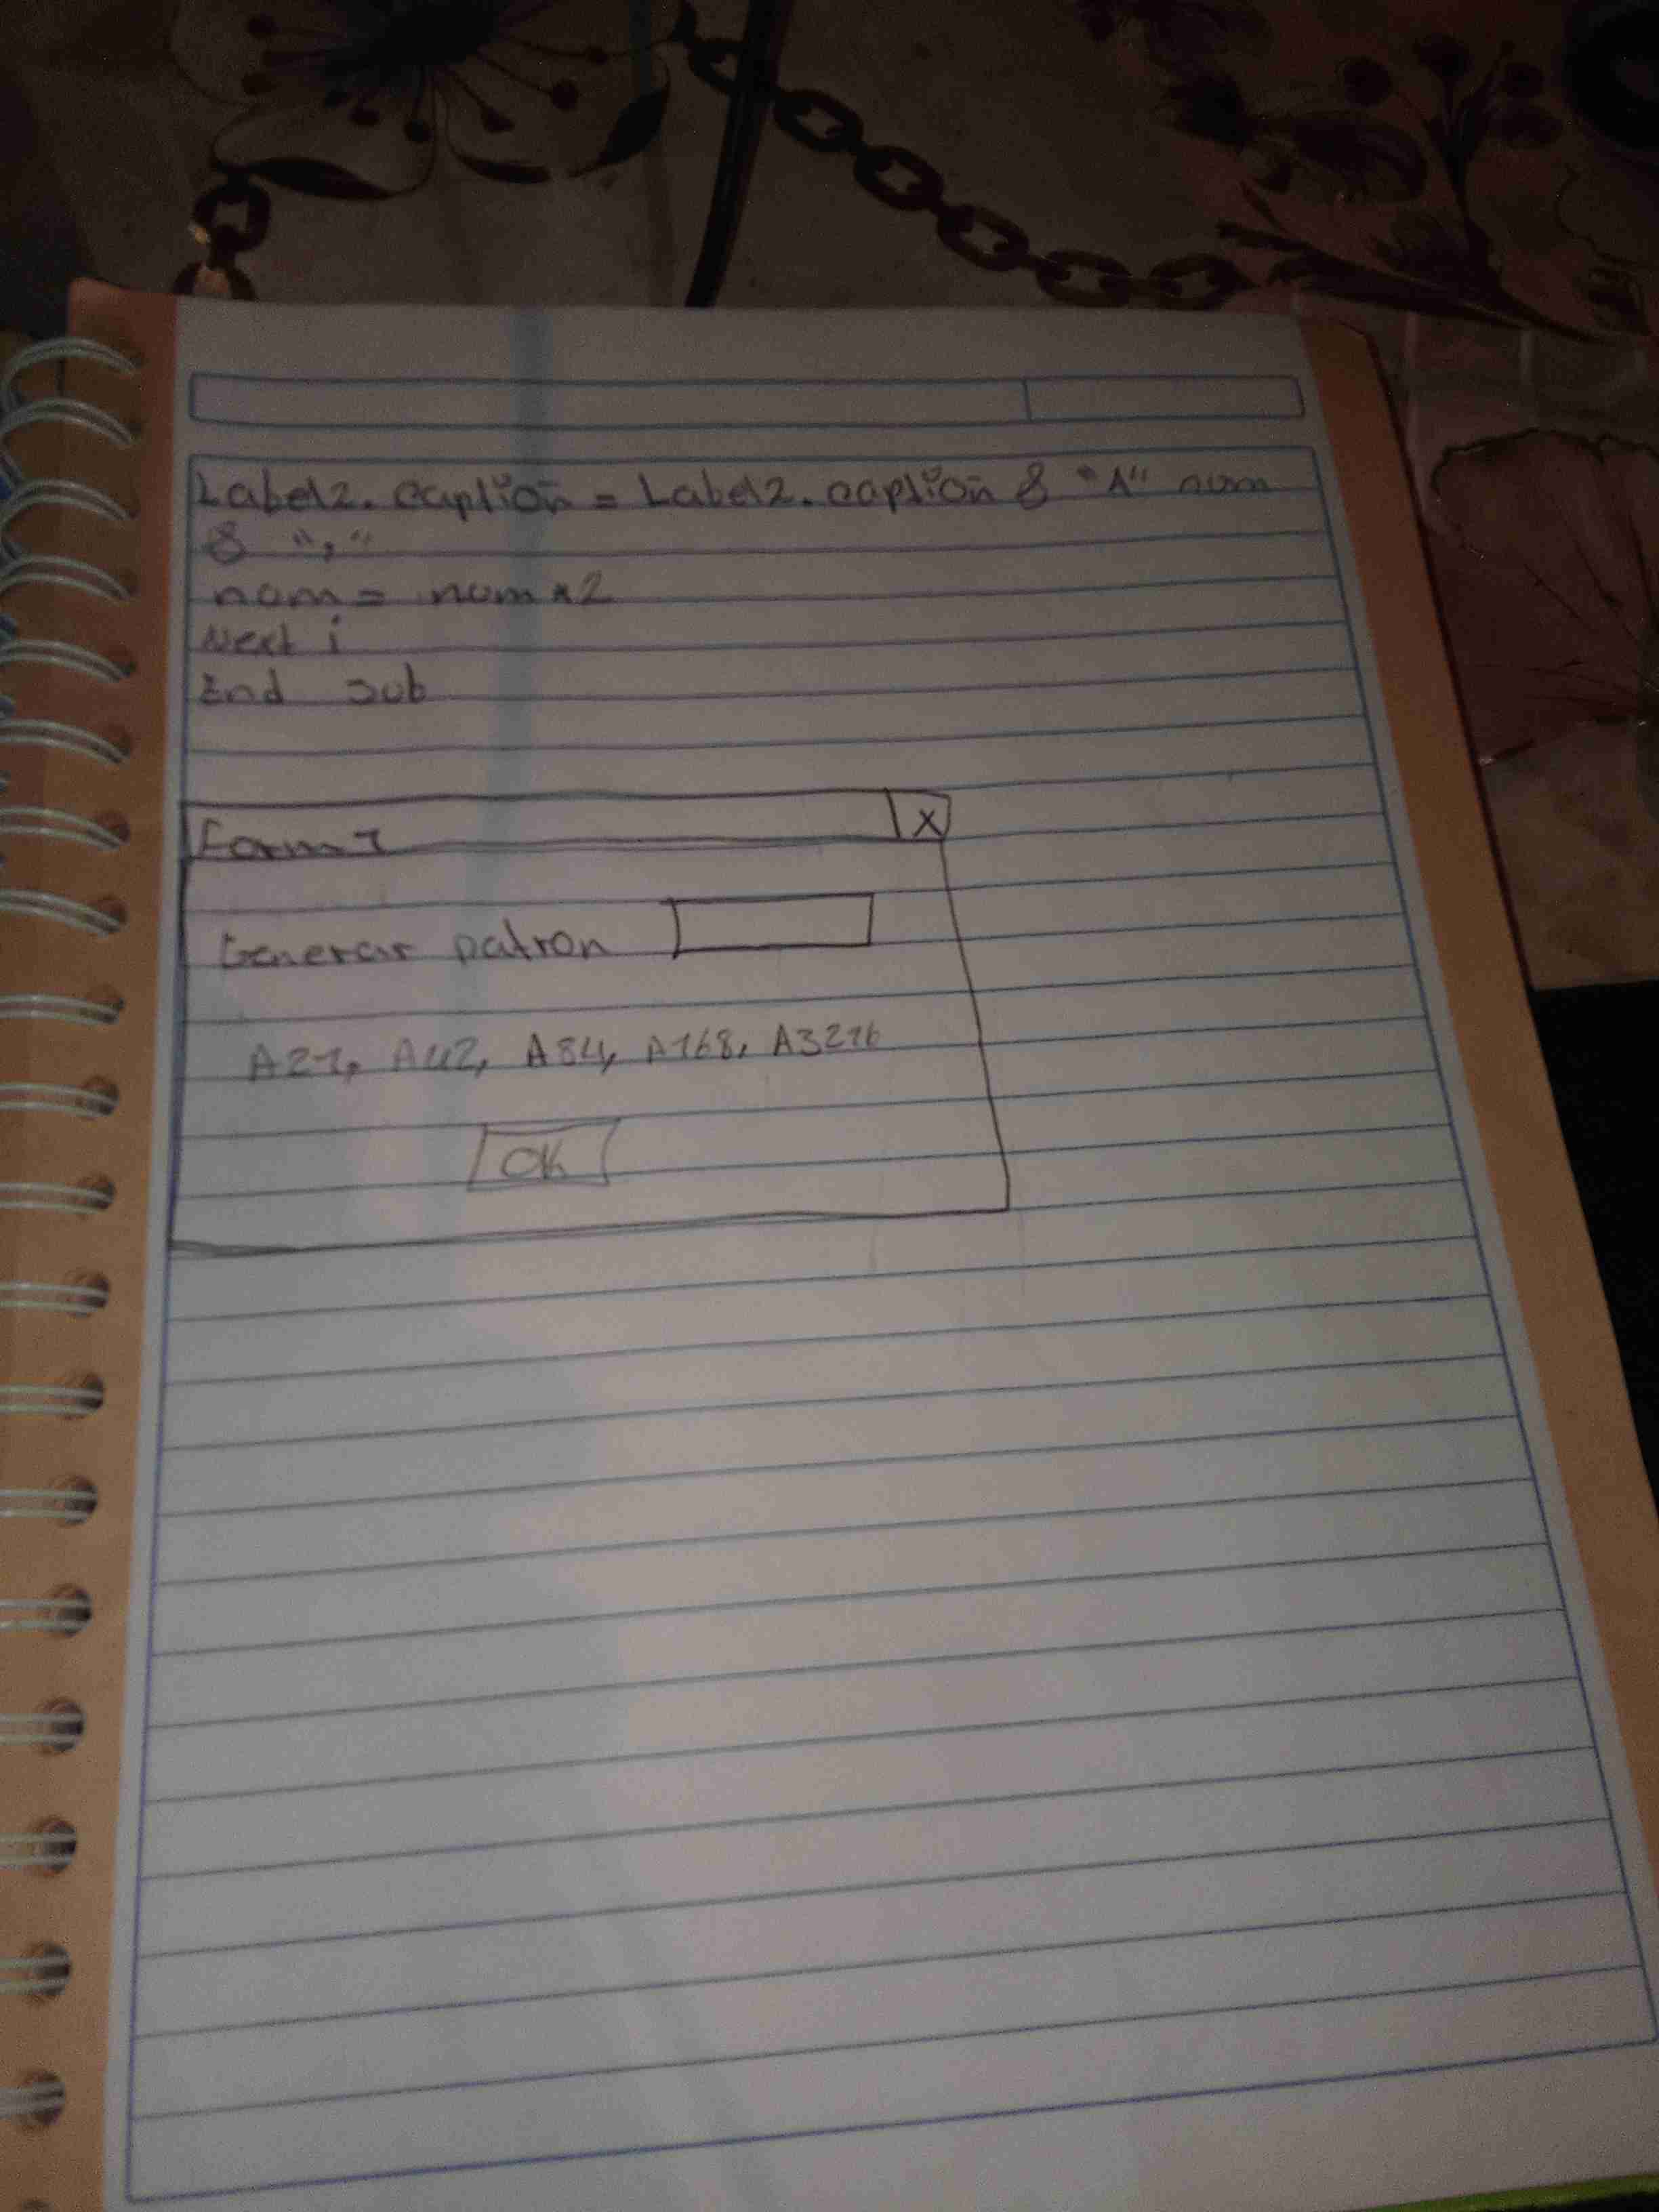 Label2.caption = Label2.caption & "A" num
& ","
num = num * 2
Next i
End sub
Form 1
X
Generar patron
A21, A42, A84, A168, A3216
OK